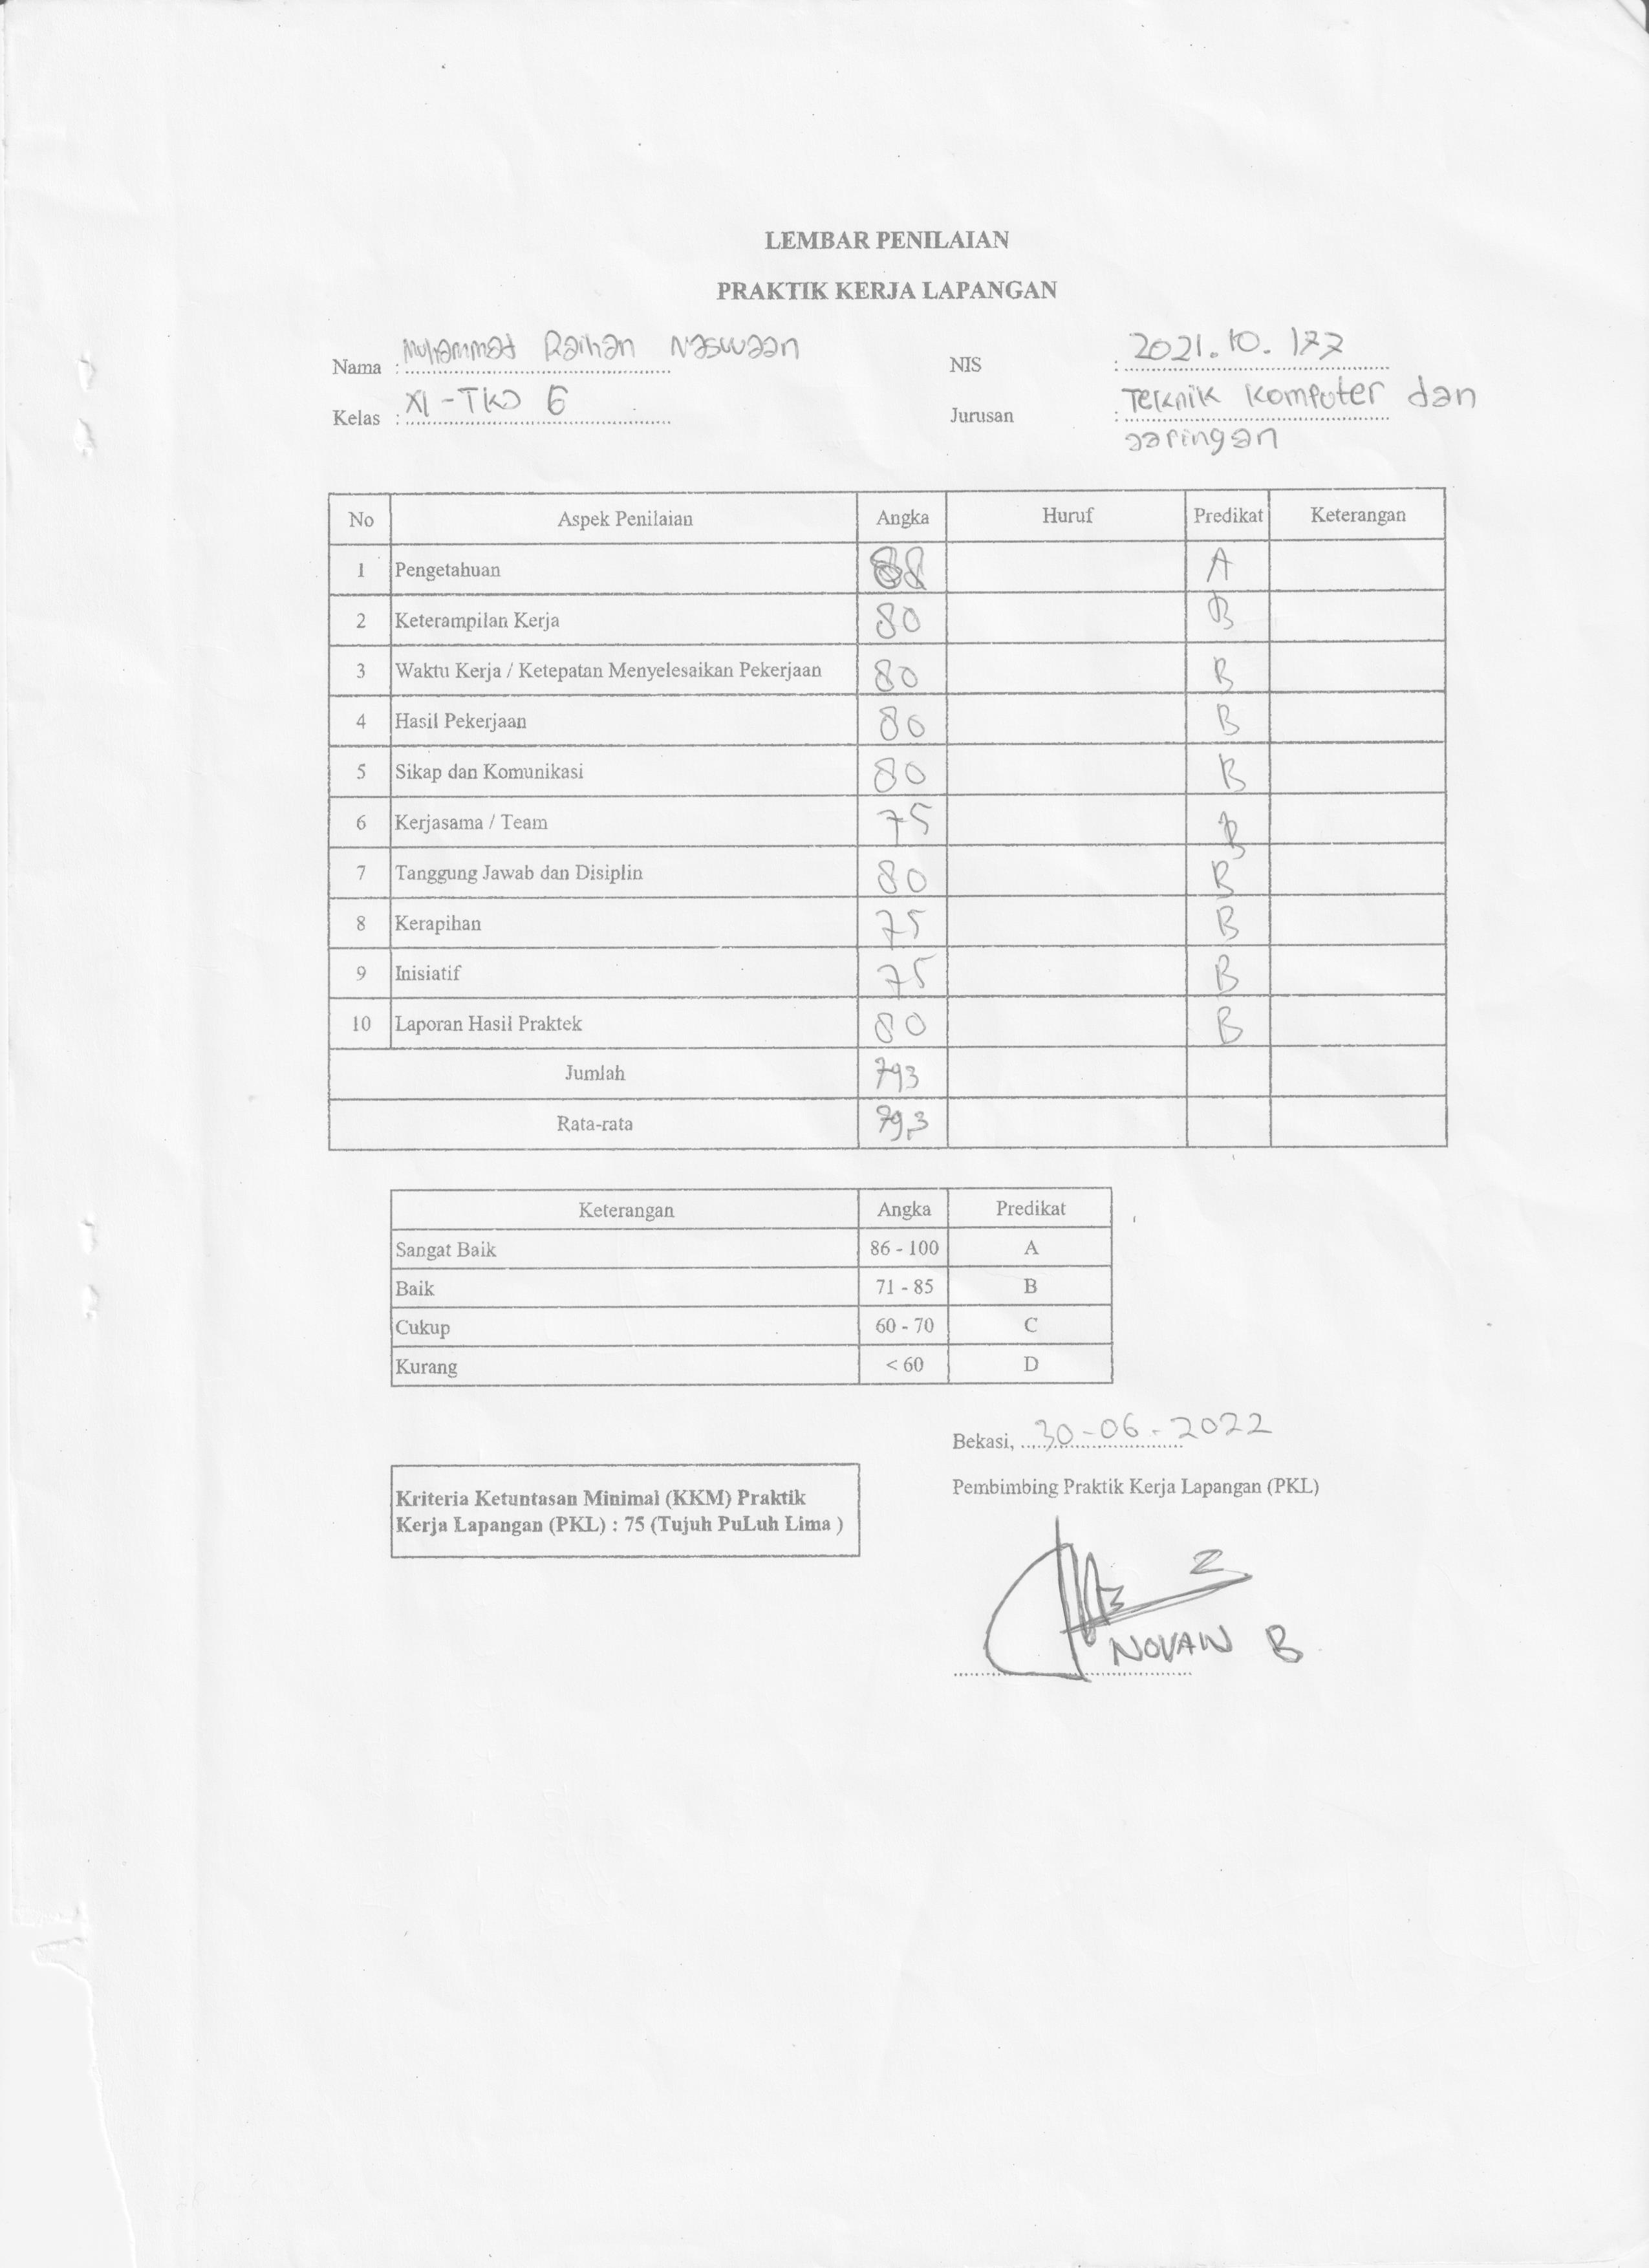 LEMBAR PENILAIAN
PRAKTIK KERJA LAPANGAN
Nama : Muhammad Raihan Naswaan
NIS : 2021.10.177
Kelas : XI-TKJ 6
Jurusan : Teknik Komputer dan
Jaringan
No Aspek Penilaian Angka Huruf Predikat Keterangan
1 Pengetahuan 88 A
2 Keterampilan Kerja 80 B
3 Waktu Kerja / Ketepatan Menyelesaikan Pekerjaan 80 B
4 Hasil Pekerjaan 80 B
5 Sikap dan Komunikasi 80 B
6 Kerjasama / Team 75 B
7 Tanggung Jawab dan Disiplin 80 B
8 Kerapihan 75 B
9 Inisiatif 75 B
10 Laporan Hasil Praktek 80 B
Jumlah 793
Rata-rata 79,3
Keterangan Angka Predikat
Sangat Baik 86 - 100 A
Baik 71 - 85 B
Cukup 60 - 70 C
Kurang < 60 D
Bekasi, 30-06-2022
Pembimbing Praktik Kerja Lapangan (PKL)
Kriteria Ketuntasan Minimal (KKM) Praktik
Kerja Lapangan (PKL) : 75 (Tujuh PuLuh Lima )
NOVAN B